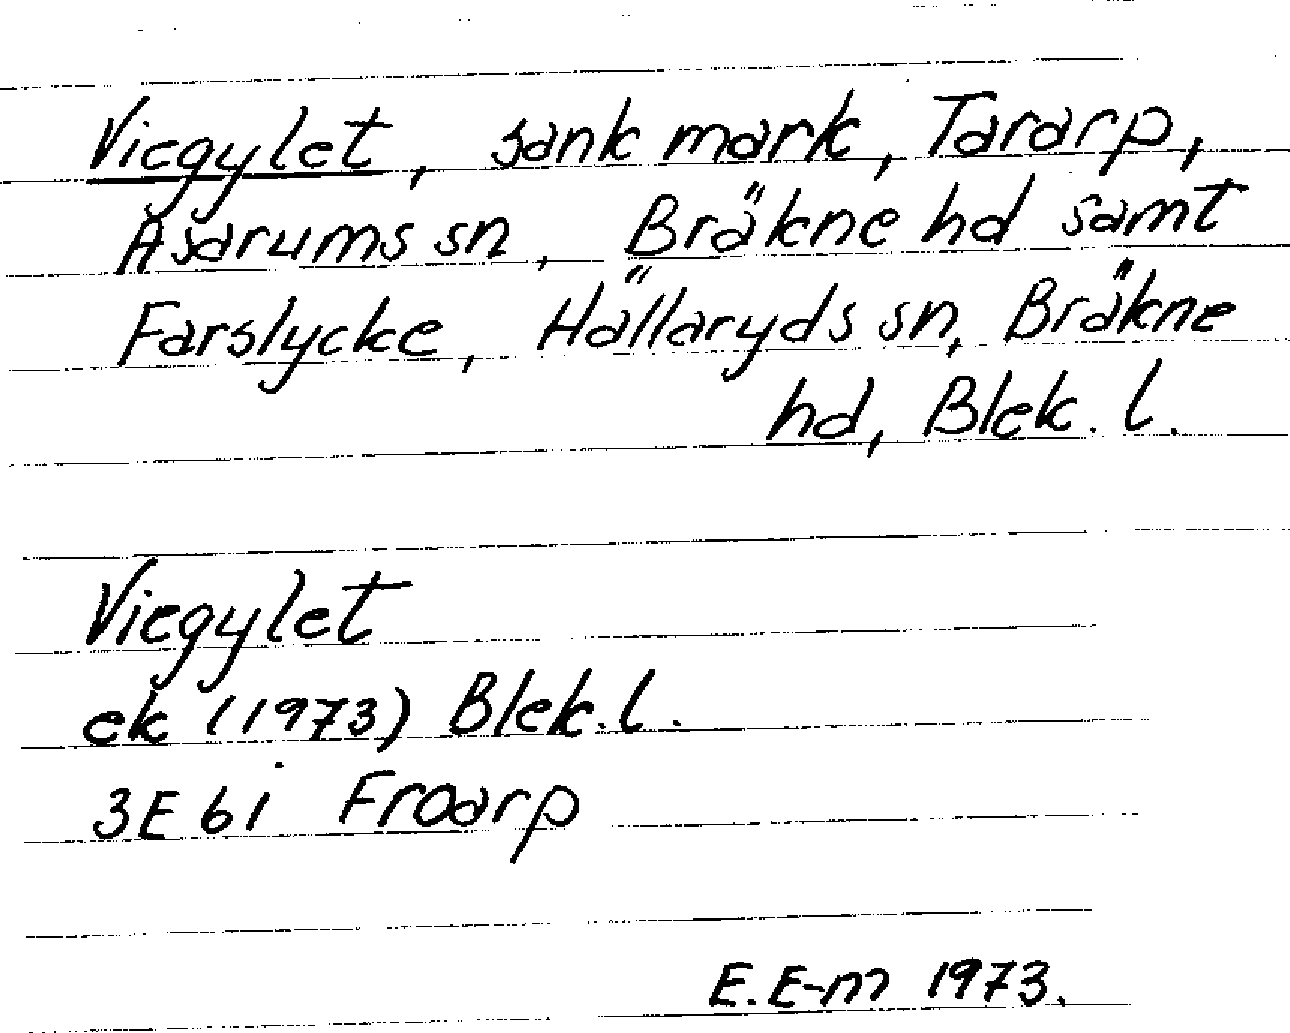 Viegylet, sank mark, Tararp,
Asarums sn, Bräkne hd samt
Farslycke, Hällaryds sn, Bräkne
hd, Blek. l.
Viegylet
ek (1973) Blek. l.
3E 6i Froarp
E. E-m 1973.